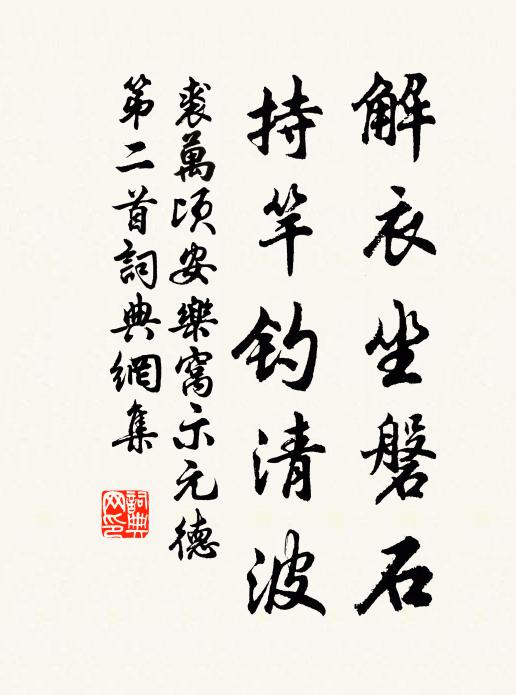 解衣坐磐石
持竿钓清波
裘萬頃安樂窩示元德
第二首詞典網集
詞典
网印